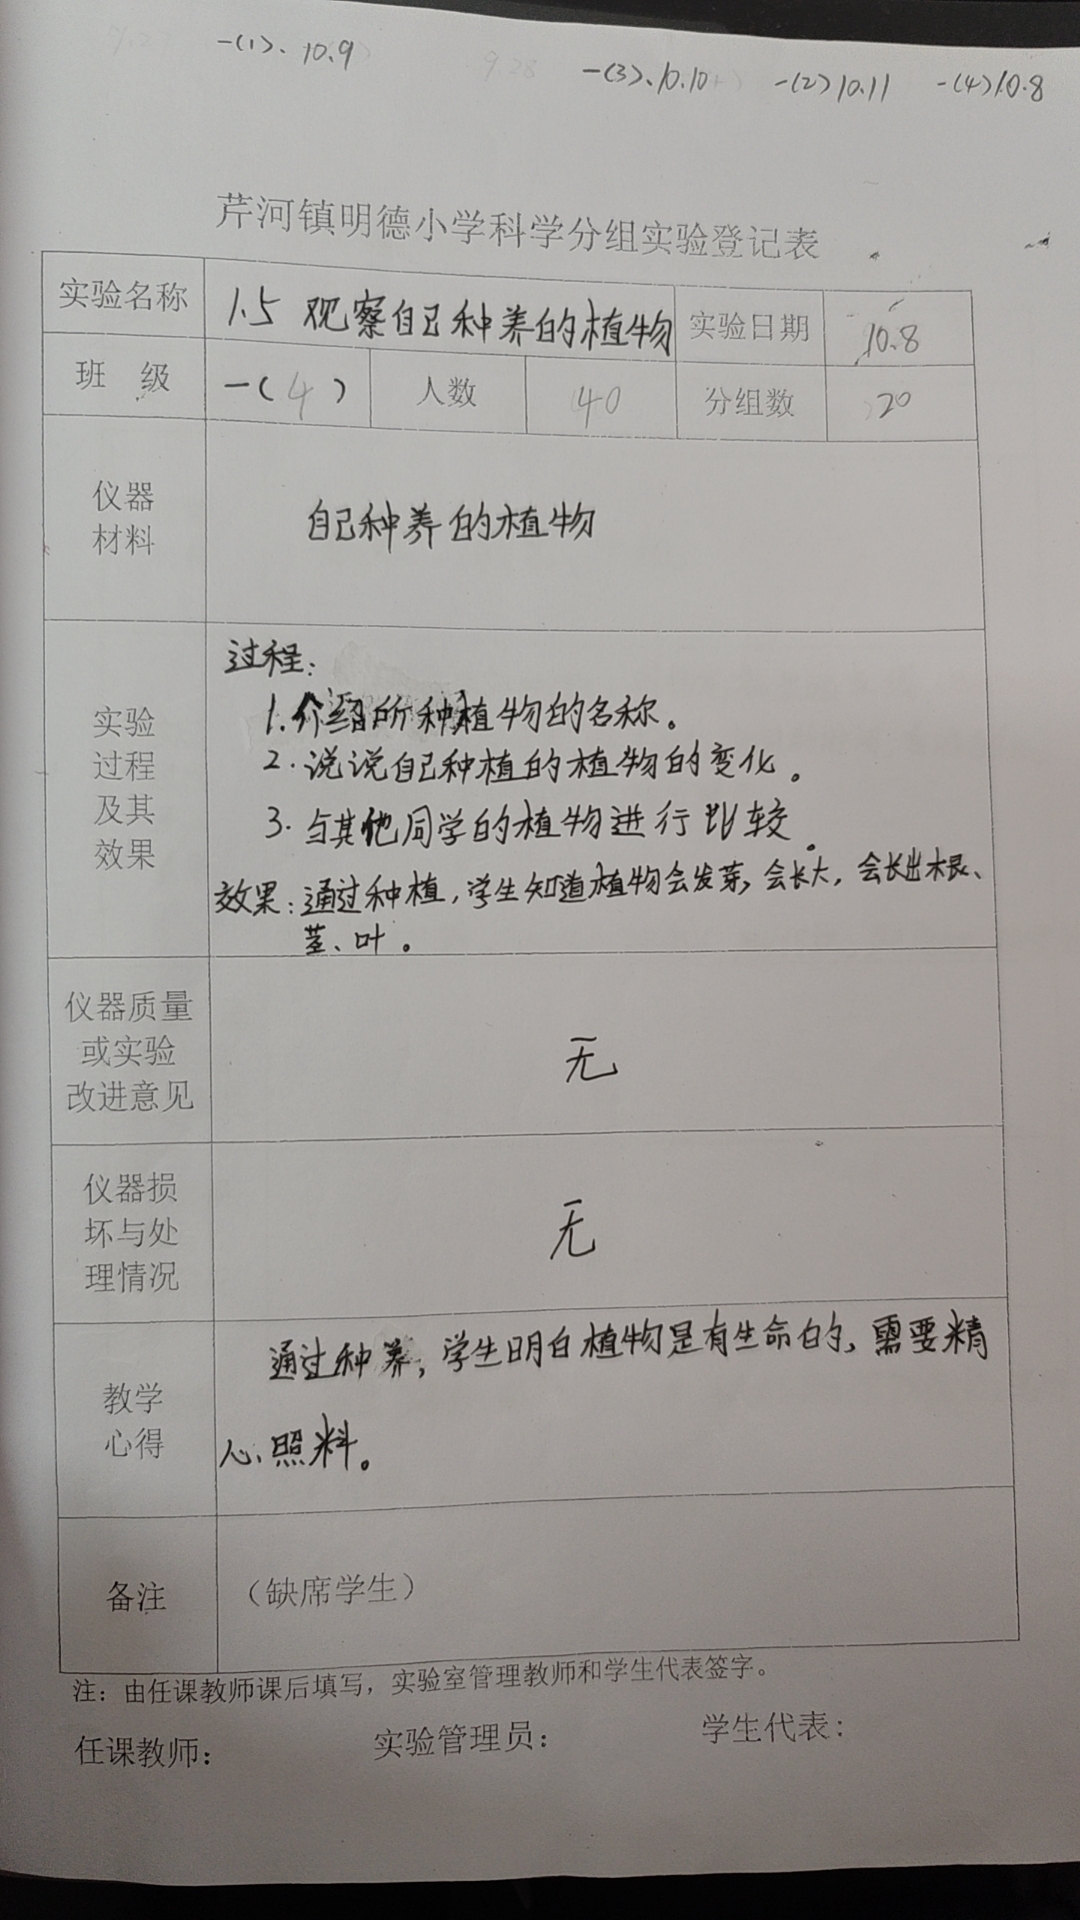 一(1)、10.9
一(3)、10.10 一(2)10.11 一(4)10.8
芹河镇明德小学科学分组实验登记表
实验名称 1.5 观察自己种养的植物 实验日期 10.8
班 级 一(4) 人数 40 分组数 20
仪器
材料
自己种养的植物
实验
过程
及其
效果
过程:
1.介绍所种植物的名称。
2.说说自己种植的植物的变化。
3.与其他同学的植物进行比较。
效果:通过种植,学生知道植物会发芽,会长大,会长出根、
茎、叶。
仪器质量
或实验
改进意见
无
仪器损
坏与处
理情况
无
教学
心得
通过种养,学生明白植物是有生命的,需要精
心照料。
备注 (缺席学生)
注:由任课教师课后填写,实验室管理教师和学生代表签字。
任课教师: 实验管理员: 学生代表: